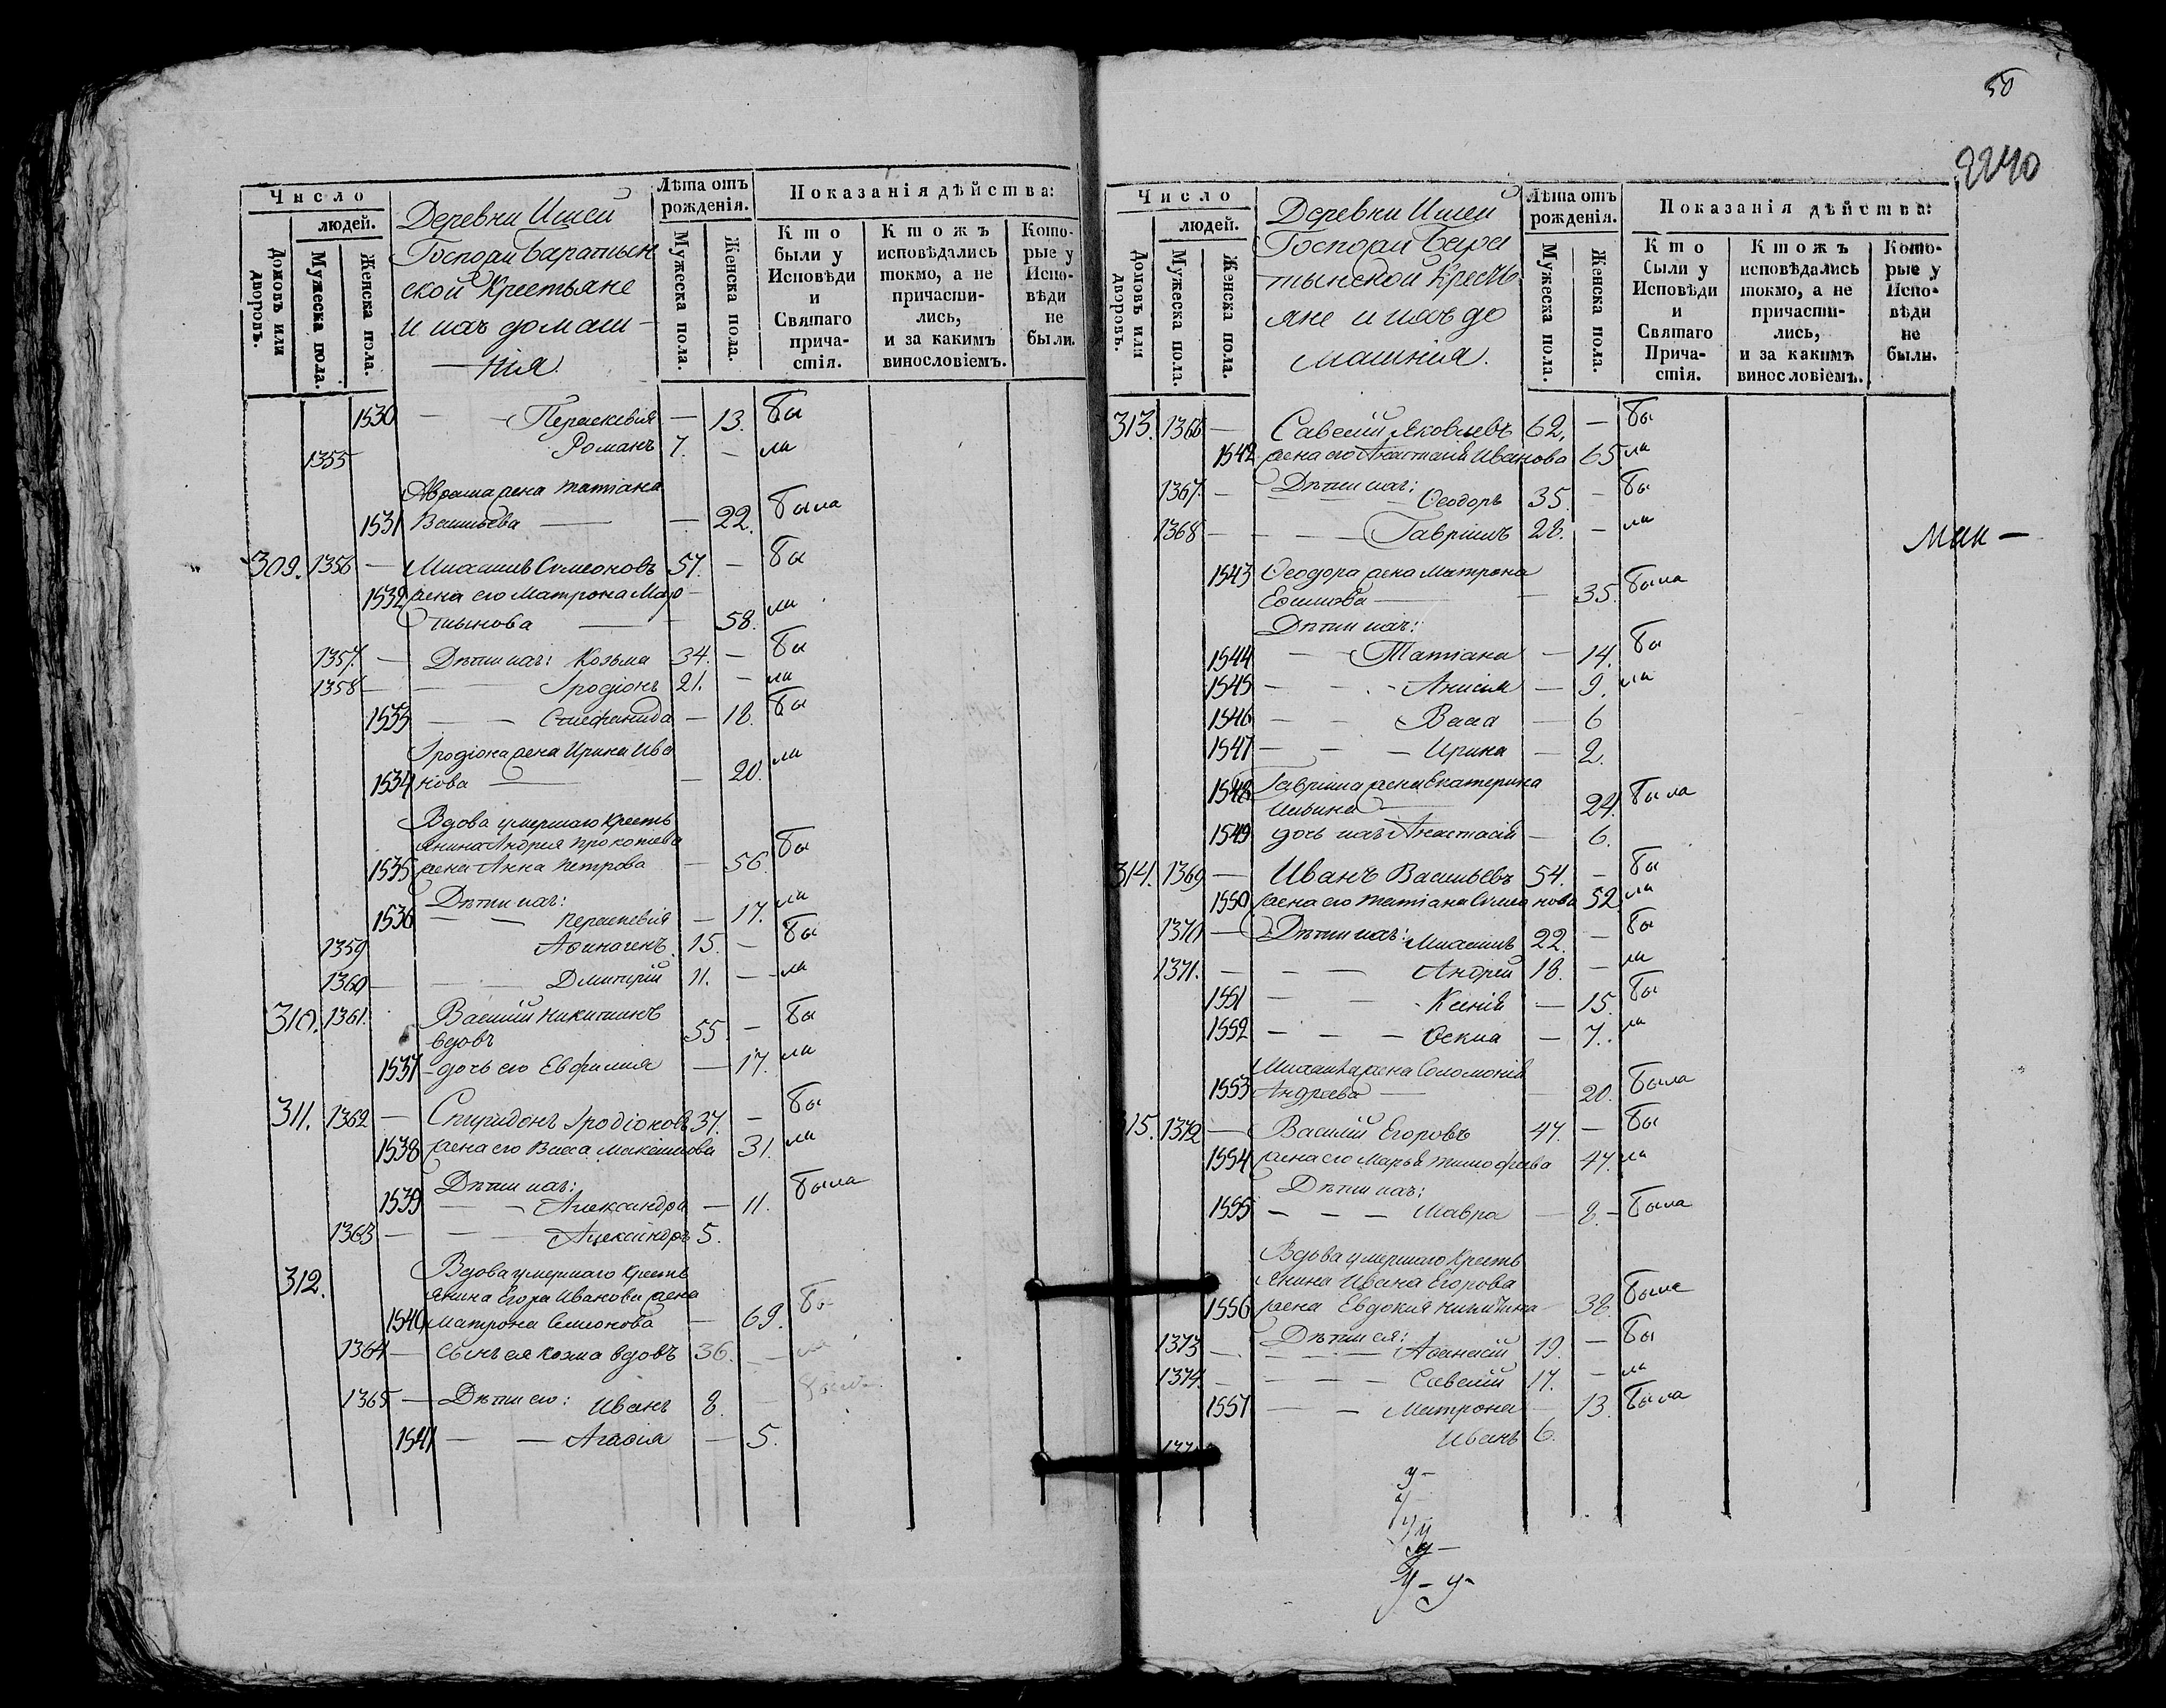 Число
людей.
Домовъ или дворовъ.
Мужеска пола.
Женска пола.
Деревни Ишеи
Госпожи Баратын
ской Крестьяне
и ихъ домаш-
нія
Лѣта отъ рожденія.
Мужеска пола.
Женска пола.
Показанія дѣйства:
Кто были у Исповѣди и Святаго прича-стія.
Ктожъ исповѣдались токмо, а не причасти-лись, и за какимъ винословіемъ.
Кото-рые у Испо-вѣди не были.
1530 — — Параскевія — 13. бы
1355 Романъ 7. — ли
жена Татіана
1531 Васильева — — 22. была
309. 1356 — Михаилъ Симеоновъ 57. — бы
1532 жена его Матрона Мар
тынова — 58. ли
1357. — Дѣти ихъ: Козьма 34. — бы
1358 — — Іродіонъ 21. — ли
1533 — — Стефанида — 18. бы
Іродіона жена Ирина Ива
1534 нова — — 20. ли
Вдова умершаго кресть
янина Андрея Прокопіева
1535 жена Анна Петрова — 56. бы
Дѣти ихъ:
1536 — — Параскевія — 17. ли
1359 Афиногенъ 15. — бы
1360 — — Дмитрій 11. — ли
310. 1361. Василій Никитинъ
вдовъ 55 — бы
1537 — дочь его Евфимія — 17. ли
311. 1362 — Спиридонъ Іродіоновъ 37. — бы
1538 жена его Васса Максимова 31. ли
Дѣти ихъ:
1539 — — Александра — 11. была
1363 — — Александръ 5.
312. Вдова умершаго кресть
янина Егора Иванова жена
1540 Матрона Семионова — 69. бы
1364 — сынъ ея Козма вдовъ 36. — ли
1365 — Дѣти его: Иванъ 8.
1541 — — Агафія — 5.
50
2240
Число
людей.
Домовъ или дворовъ.
Мужеска пола.
Женска пола.
Деревни Ишеи
Госпожи Бара
тынской Кресть
яне и ихъ до
машнія.
Лѣта отъ рожденія.
Мужеска пола.
Женска пола.
Показанія дѣйства:
Кто были у Исповѣди и Святаго Прича-стія.
Ктожъ исповѣдались токмо, а не причасти-лись, и за какимъ винословіемъ.
Кото-рые у Испо-вѣди не были.
313. 1366 — Савелій Яковлевъ 62. — бы
1542 жена его Анастасія Иванова 65 ли
1367. — Дѣти ихъ: Ѳеодоръ 35. — бы
1368 — — — Гавріилъ 28. — ли
1543 Ѳеодора жена Матрона
Ефимова — — 35. была
Дѣти ихъ:
1544 — — Татіана — 14. бы
1545 — — Анисія — 9. ли
1546 — — Васса — 6
1547 — — Ирина — 2.
1548 Гавріила жена Екатерина
Ильина — 24. была
1549 дочь ихъ Анастасія — 6.
314. 1369 — Иванъ Васильевъ 54. — бы
1550 жена его Татіана Симионова 52. ли
1370 — Дѣти ихъ: Михаилъ 22. — бы
1371. — — — Андрей 18. — ли
1551 — — Ксенія — 15. бы
1552 — — — Ѳекла — 7. ли
Михаила жена Соломонія
1553 Андреева — — 20. была
315. 1372 — Василій Егоровъ 47. — бы
1554 жена его Марья Тимофеева 47. ли
Дѣти ихъ:
1555 — — — Мавра — 8. — была
Вдова умершаго Кресть
янина Ивана Егорова
1556 жена Евдокия Никитина — 38. была
Дѣти ея:
1373 — — — Афанасій 19. — бы
1374. — — — Савелій 17. — ли
1557 — — Матрона — 13. была
Иванъ 6.